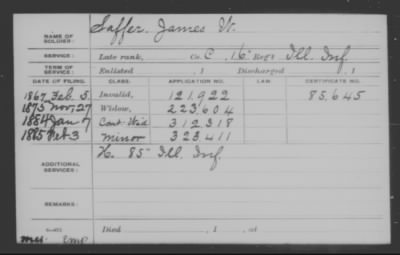 NAME OF SOLDIER: Saffer, James W.
SERVICE: Late rank, Co. C, 16 Reg't Ill. Inf.
TERM OF SERVICE: Enlisted , 1 Discharged , 1
DATE OF FILING. CLASS. APPLICATION NO. LAW. CERTIFICATE NO.
1867 Feb. 5 Invalid, 121,922 85,645
1875 Nov, 27 Widow, 223,604
1884 Jan 7 Cont Wid 312,318
1885 Feb 3 Minor 323,411
ADDITIONAL SERVICES: K. 85 Ill. Inf.
REMARKS:
Died , 1 , at